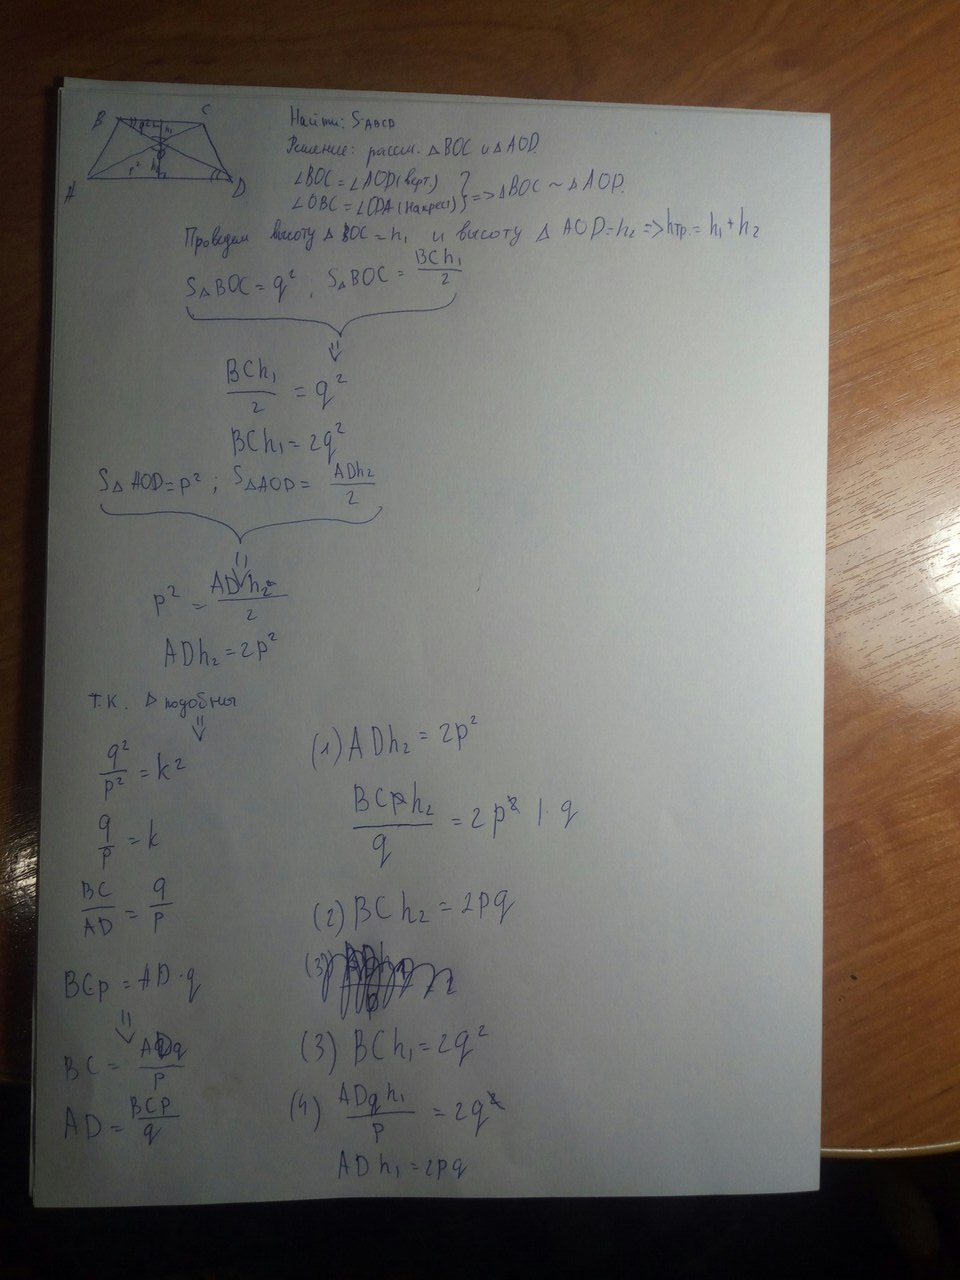 B C
q² h₁
O
p² h₂
A D
Найти: S ABCD
Решение: рассм. △BOC и △AOD.
∠BOC = ∠AOD (верт.)
∠OBC = ∠ODA (накрест) } => △BOC ~ △AOD.
Проведем высоту △ BOC = h₁ и высоту △ AOD = h₂ => hтр. = h₁ + h₂
S△BOC = q², S△BOC = BCh₁/2
⇓
BCh₁/2 = q²
BCh₁ = 2q²
S△AOD = p²; S△AOD = ADh₂/2
⇓
p² = ADh₂/2
ADh₂ = 2p²
т.к. △ подобны
⇓
q²/p² = k²
q/p = k
BC/AD = q/p
BCp = AD·q
⇓
BC = ADq/p
AD = BCp/q
(1) ADh₂ = 2p²
BCph₂/q = 2p² | · q
(2) BCh₂ = 2pq
(3) BCh₁ = 2q²
(4) ADqh₁/p = 2q²
ADh₁ = 2pq